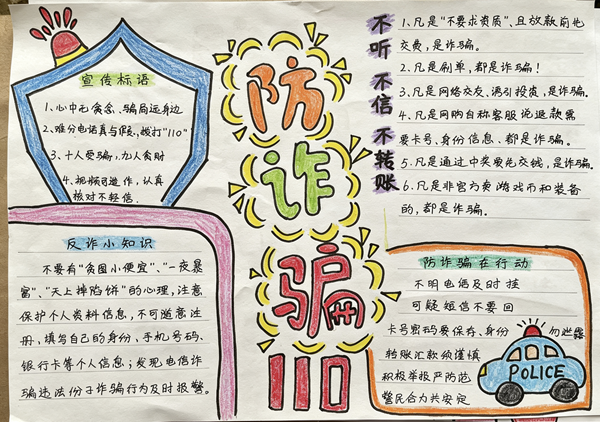 宣传标语
1、心中无贪念、骗局远身边
2、难分电话真与假、拨打"110"
3、十人受骗,九人贪财
4、视频可造作,认真
核对不轻信.
反诈小知识
不要有"贪图小便宜"、"一夜暴
富"、"天上掉陷饼"的心理,注意
保护个人资料信息,不可随意注
册,填写自己的身份、手机号码、
银行卡等个人信息;发现电信诈
骗违法份子诈骗行为及时报警。
防
诈
骗
110
不听 不信 不转账
1、凡是"不要求资质"、且放款前先
交费,是诈骗。
2、凡是刷单,都是诈骗!
3、凡是网络交友、诱引投资,是诈骗.
4、凡是网购自称客服说退款需
要卡号、身份信息、都是诈骗.
5、凡是通过中奖要先交钱,是诈骗.
6、凡是非官方卖游戏币和装备
的,都是诈骗.
防诈骗在行动
不明电信及时挂
可疑短信不要回
卡号密码要保存、身份 勿泄露
转账汇款须谨慎
积极举报严防范
警民合力共安定
POLICE